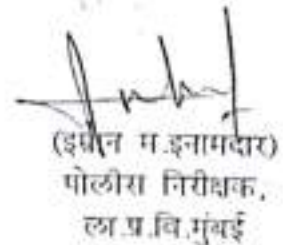 (इम्रान म.इनामदार)
पोलीस निरीक्षक,
ला.प्र.वि.मुंबई